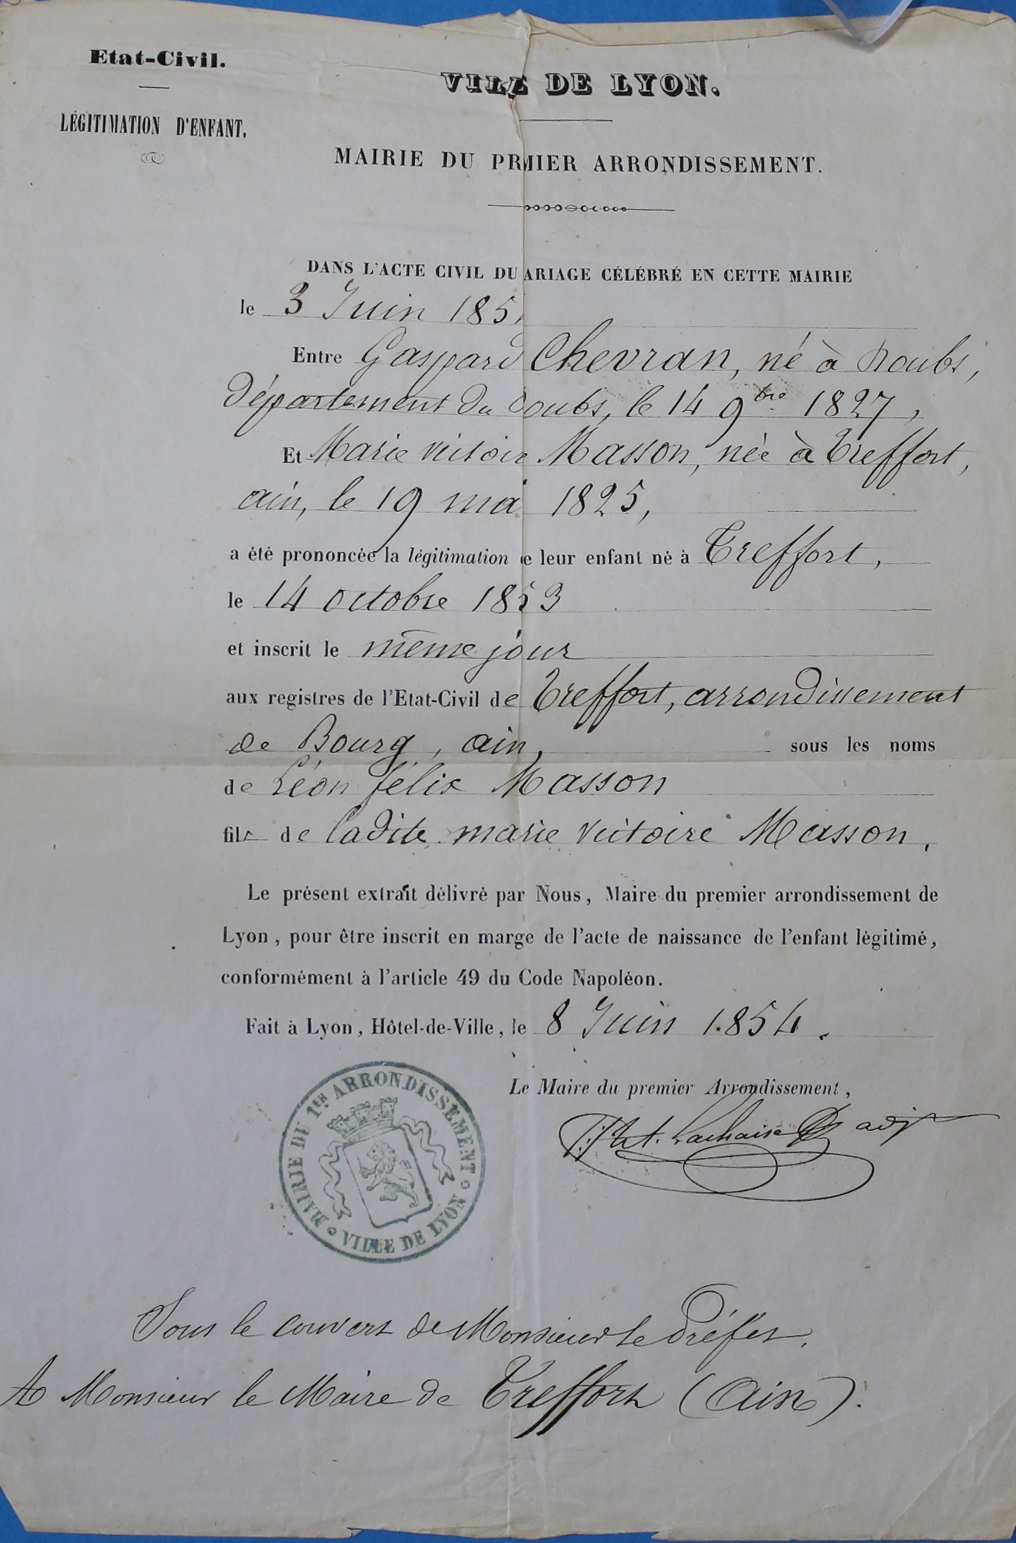 Etat-Civil.
LÉGITIMATION D'ENFANT.
VILE DE LYON.
MAIRIE DU PRMIER ARRONDISSEMENT.
DANS L'ACTE CIVIL DU ARIAGE CÉLÉBRÉ EN CETTE MAIRIE
le 3 Juin 185
Entre Gaspard Chevran, né à Doubs,
département du Doubs, le 14 9bre 1827,
Et Marie Victoir Masson, née à Treffort,
ain, le 19 mai 1825,
a été prononcée la légitimation e leur enfant né à Treffort,
le 14 octobre 1853
et inscrit le même jour
aux registres de l'Etat-Civil de Treffort, arrondissement
de Bourg, ain, sous les noms
de Léon félix Masson
fils de ladite marie Victoire Masson.
Le présent extrait délivré par Nous, Maire du premier arrondissement de
Lyon, pour être inscrit en marge de l'acte de naissance de l'enfant légitimé,
conformément à l'article 49 du Code Napoléon.
Fait à Lyon, Hôtel-de-Ville, le 8 Juin 1854.
Le Maire du premier Arrondissement,
Lachaise adj
MAIRIE DU 1er ARRONDISSEMENT
VILLE DE LYON
Sous le couvert de Monsieur le Préfet.
A Monsieur le Maire de Treffort (Ain).